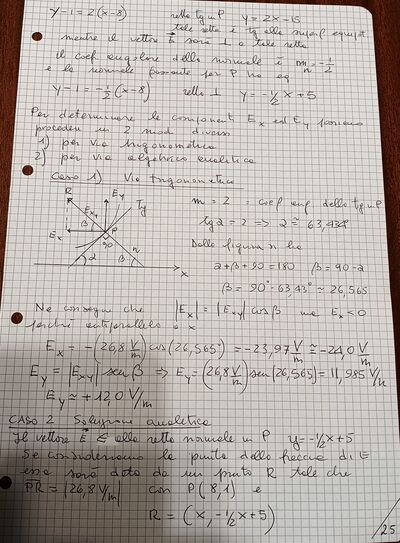 y-1=2(x-8) retta tg in P y=2x-15
tale retta è tg alla superf equipot.
mentre il vettore E sarà ⊥ a tale retta
il coef angolare della normale è m_n=-1/2
e la normale passante per P ha eq
y-1=-1/2(x-8) retta ⊥ y=-1/2x+5
Per determinare le componenti Ex ed Ey possiamo
procedere in 2 modi diversi
1) per via trigonometrica
2) per via algebrica analitica
Caso 1) Via trigonometrica
R Ey Tg
Exy
β
Ex P
90
α β n
x
m = 2 = coef ang della tg in P
tg α = 2 ⇒ α ≅ 63,43°
Dalla figura si ha
α+β+90=180 β=90-α
β = 90°-63,43° ≅ 26,565
Ne consegue che |Ex| = |Exy| cos β ma Ex<0
perché antiparallelo a x
Ex = -(26,8 V/m) cos(26,565°) = -23,97 V/m ≅ -24,0 V/m
Ey = |Exy| sen β ⇒ Ey = (26,8 V/m) sen(26,565) = 11,985 V/m
Ey ≃ +12,0 V/m
CASO 2 Soluzione analitica
Il vettore E ∈ alla retta normale in P y=-1/2x+5
Se consideriamo la punta della freccia di E
essa sarà data da un punto R tale che
PR = |26,8 V/m| con P(8,1) e
R = (x, -1/2x+5)
25